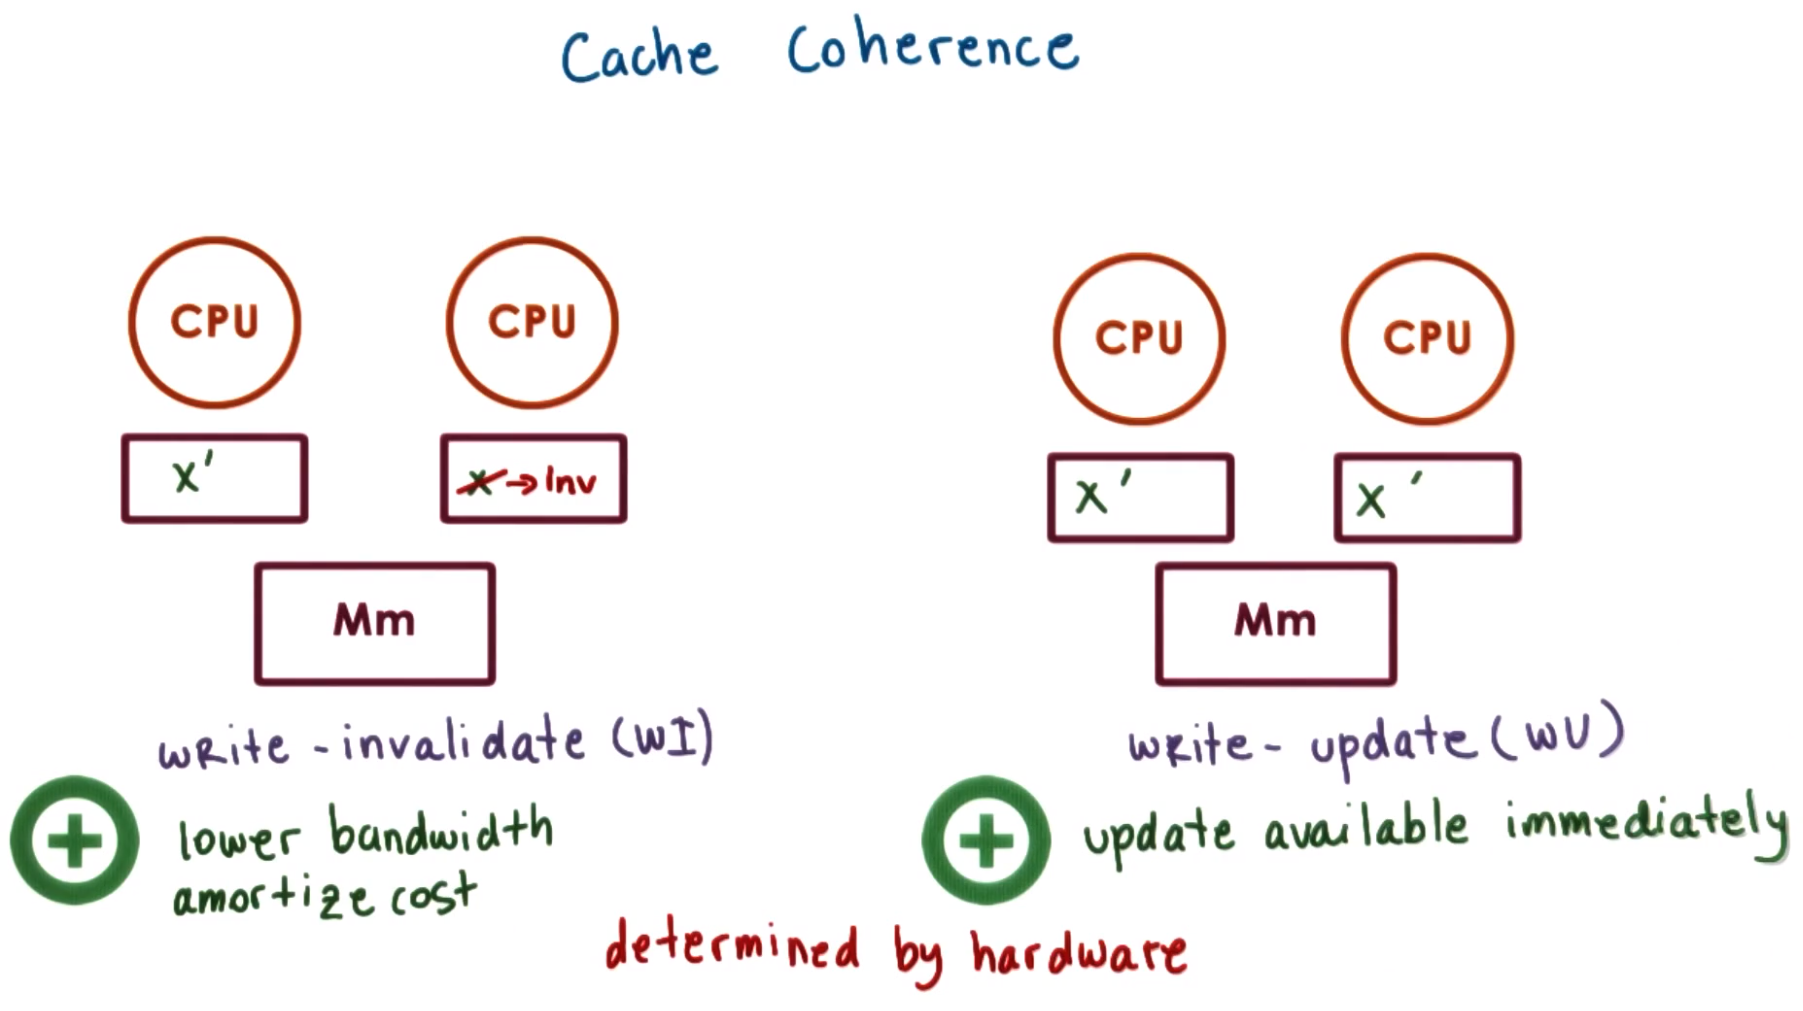 Cache Coherence
CPU
CPU
X'
x → Inv
Mm
write-invalidate (WI)
lower bandwidth
amortize cost
CPU
CPU
X'
X'
Mm
write-update (WU)
update available immediately
determined by hardware